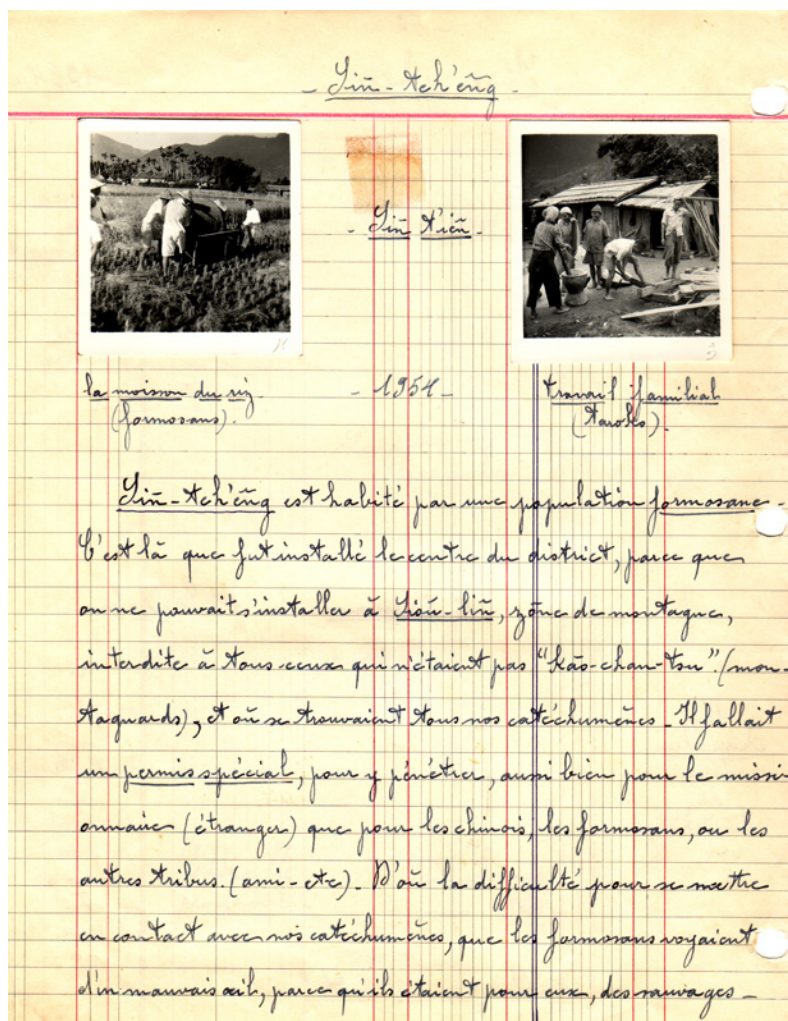 - Sin-Tch'eng -
- Sin T'ien -
la moisson du riz
(formosans).
- 1954 -
travail familial
(Taroko).
Sin-Tch'eng est habité par une population formosane -
C'est là que fut installé le centre du district, parce que
on ne pouvait s'installer à Siou-lin, zône de montagne,
interdite à tous ceux qui n'étaient pas "Kao-chan-tsu" (mon-
tagnards), et où se trouvaient tous nos catéchumènes - Il fallait
un permis spécial, pour y pénétrer, aussi bien pour le missi-
onnaire (étranger) que pour les chinois, les formosans, ou les
autres tribus. (ami - etc) - D'où la difficulté pour se mettre
en contact avec nos catéchumènes, que les formosans voyaient
d'un mauvais œil, parce qu'ils étaient pour eux, des sauvages -